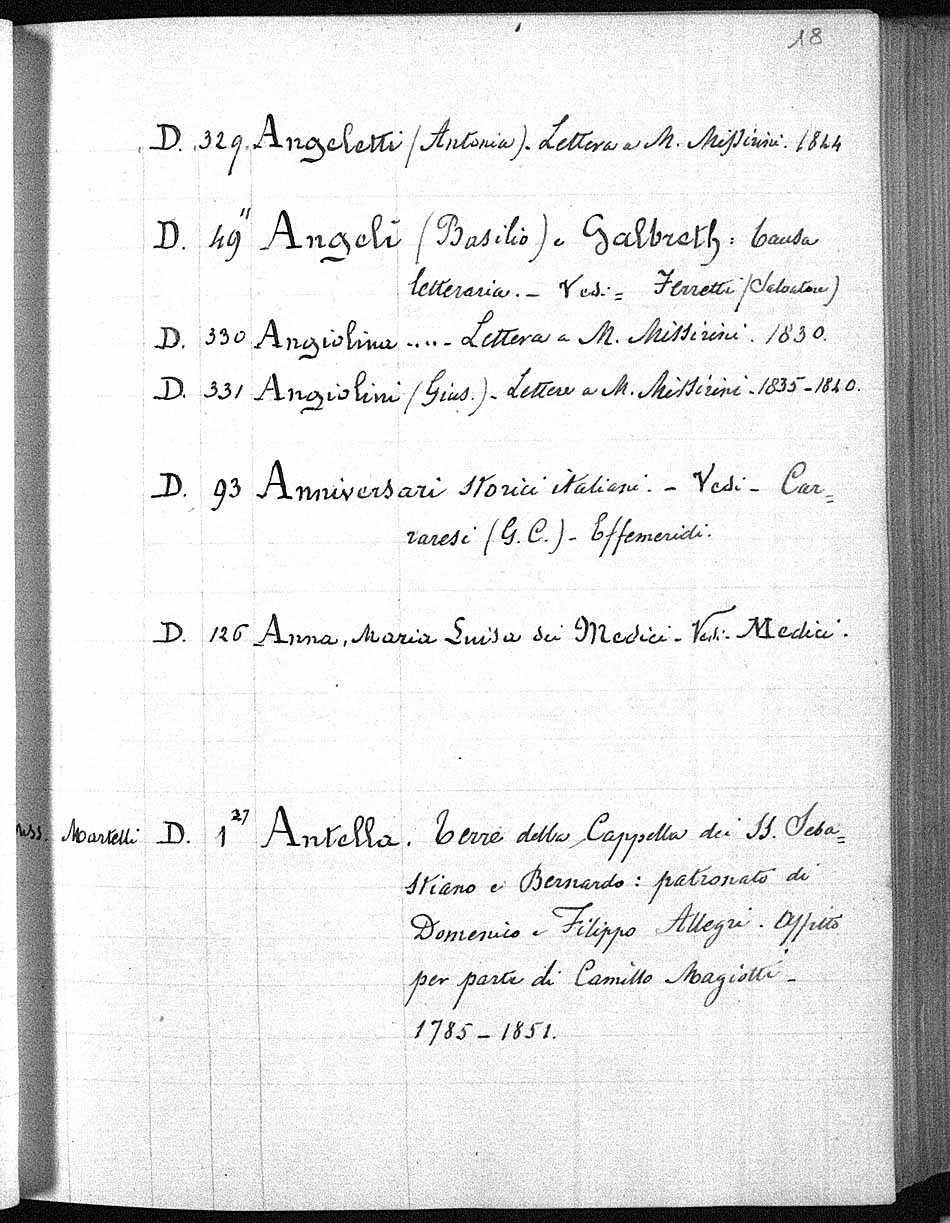 18
D. 329. Angeletti (Antonia). Lettera a M. Missirini. 1844
D. 49" Angeli (Basilio) e Galbreth: Causa
letteraria. – Vedi = Ferretti (Salvatore)
D. 330 Angiolina ..... Lettera a M. Missirini. 1830.
D. 331 Angiolini (Gius.) – Lettere a M. Missirini – 1835 – 1840.
D. 93 Anniversari storici italiani. – Vedi – Car=
raresi (G. C.) – Effemeridi.
D. 126 Anna, Maria Luisa dei Medici – Vedi – Medici.
Mss. Martelli D. 1 27 Antella. Terre della Cappella dei SS. Seba=
stiano e Bernardo: patronato di
Domenico e Filippo Allegri. Affitto
per parte di Camillo Magiotti –
1785 – 1851.